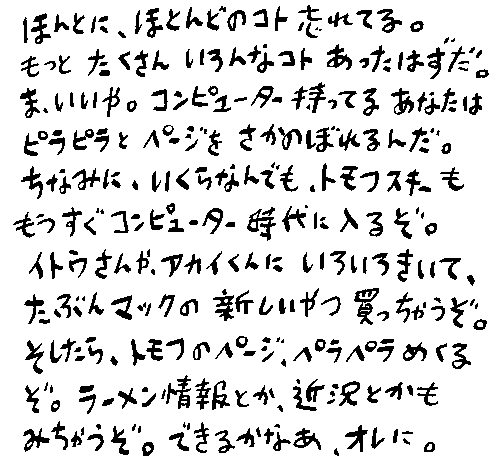 ほんとに、ほとんどのコト忘れてる。
もっと たくさん いろんなコト あったはずだ。
ま、いいや。コンピューター持ってる あなたは
ピラピラと ページを さかのぼれるんだ。
ちなみに、いくらなんでも、トモフスキーも
もうすぐコンピューター時代に入るぞ。
イトウさんや、アカイくんに いろいろきいて、
たぶんマックの 新しいやつ 買っちゃうぞ。
そしたら、トモフのページ、ペラペラめくる
ぞ。ラーメン情報とか、近況とかも
みちゃうぞ。できるかなあ、オレに。